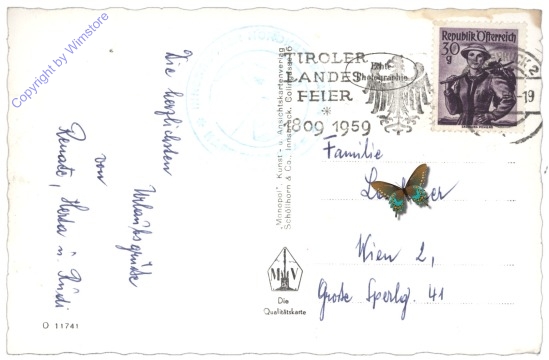 Copyright by Wimstore
Die herzlichsten
Urlaubsgrüße
von
Renate, Herta u. Rudi
O 11741
TIROLER
LANDES
FEIER
1809 1959
Echte
Photographie
Republik Österreich
30
g
-19
"Monopol", Kunst- u. Ansichtskartenverlag
Schöllhorn & Co., Innsbruck, Colingasse 6
M V
Die
Qualitätskarte
Familie
Wien 2,
Große Sperlg. 41